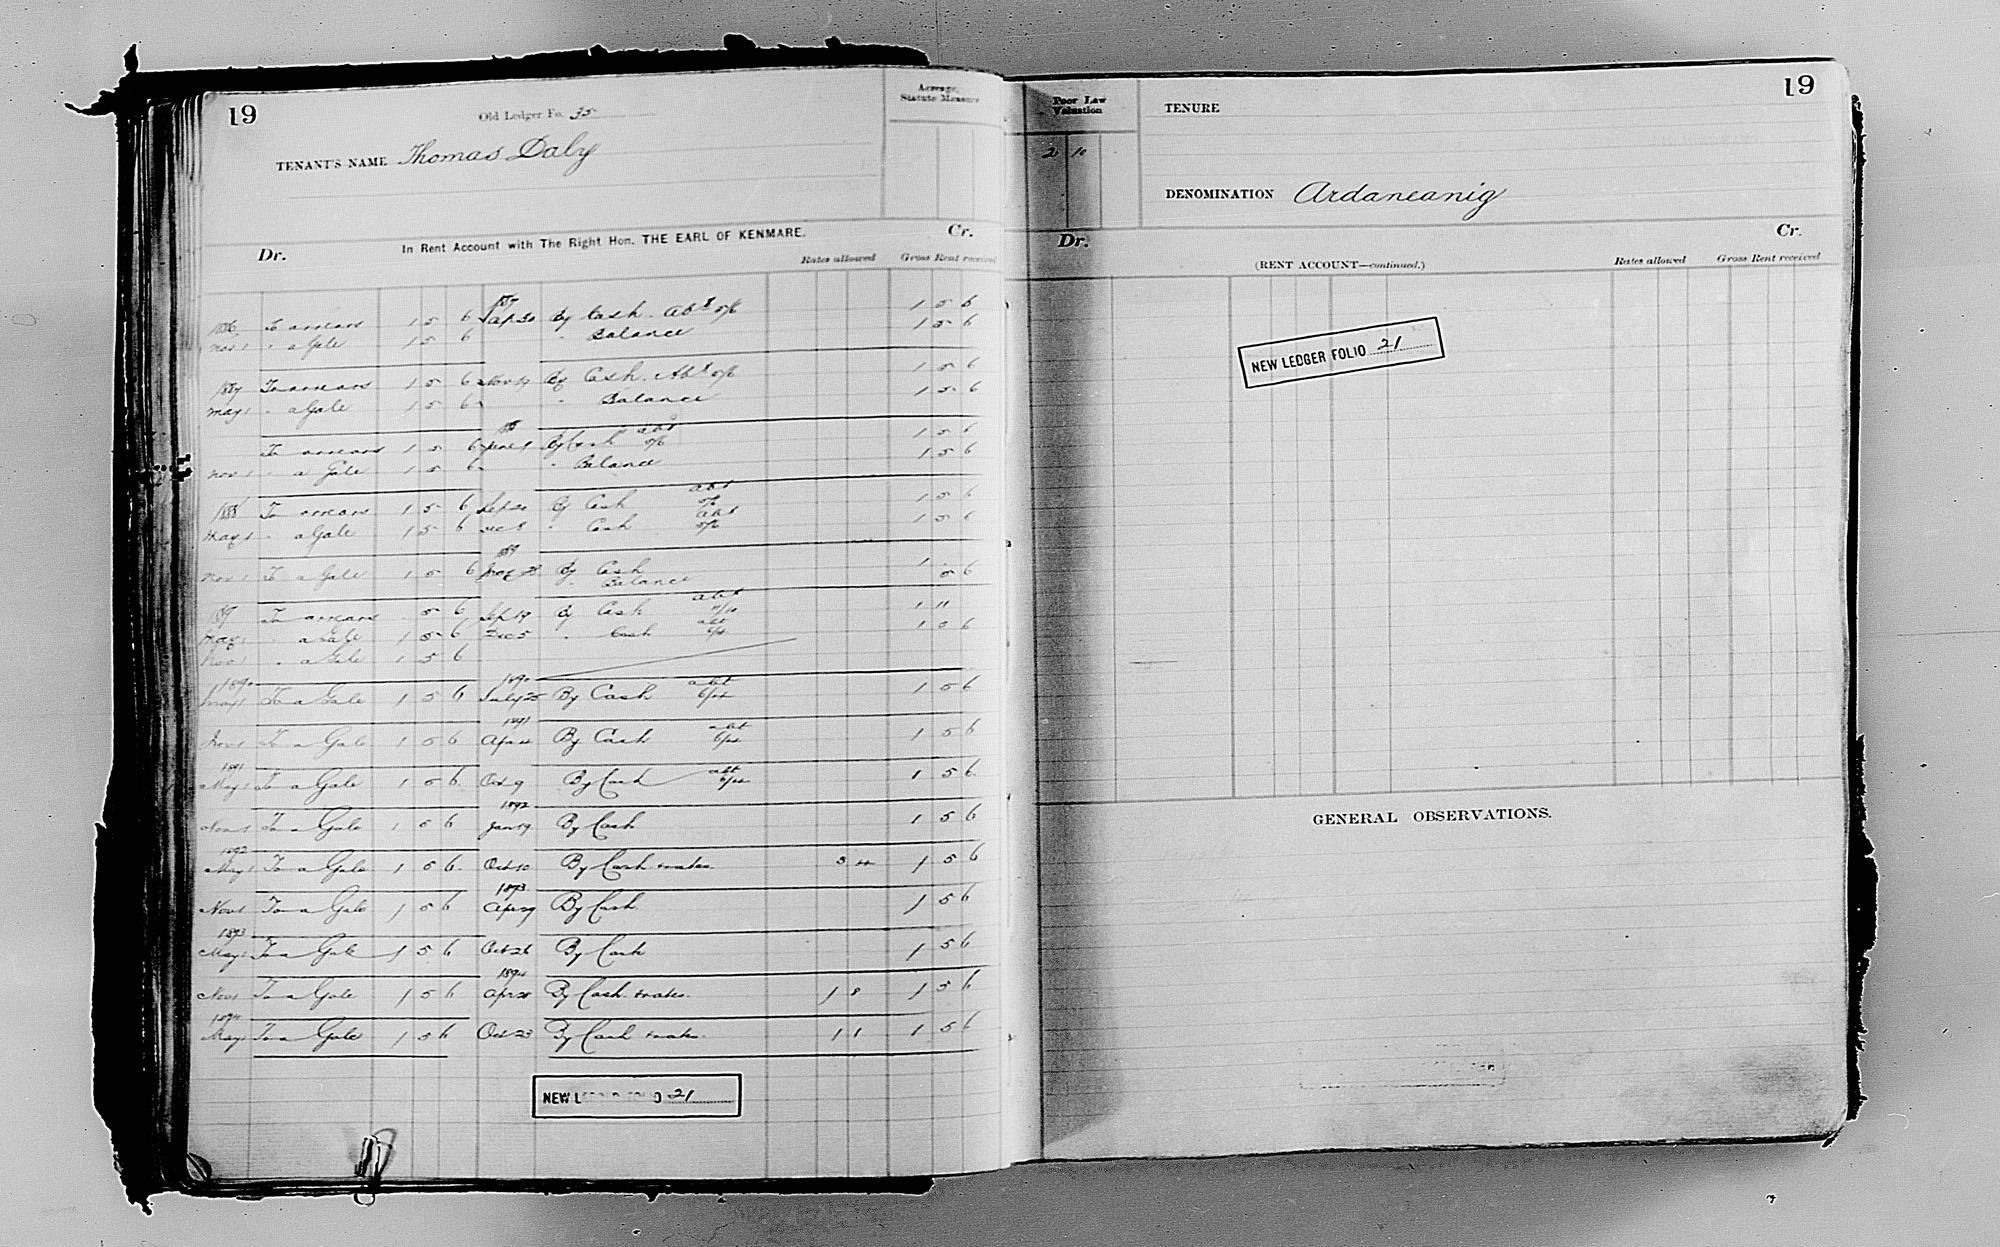 19
Old Ledger Fo. 35
TENANT'S NAME Thomas Daly
Acreage, Statute Measure
In Rent Account with The Right Hon. THE EARL OF KENMARE.
Dr. Cr.
Rates allowed Gross Rent received
1887
1886 To arrears 1 5 6 Apl 30 By Cash. Abt 5/6 1 5 6
Nov 1 " a Gale 1 5 6 " Balance 1 5 6
1887 To arrears 1 5 6 Nov 19 By Cash. Abt 5/6 1 5 6
May 1 " a Gale 1 5 6 " Balance 1 5 6
188
To arrears 1 5 6 June 1 By Cash abt 5/6 1 5 6
Nov 1 " a Gale 1 5 6 " Balance 1 5 6
1888 To arrears 1 5 6 Sep 20 By Cash abt 5/6 1 5 6
May 1 " a Gale 1 5 6 Dec 8 " Cash abt 5/6 1 5 6
1889
Nov 1 To a Gale 1 5 6 May 28 By Cash 1
" Balance 5 6
1889 To arrears 5 6 Sep 19 By Cash abt 1 11
May 1 " a Gale 1 5 6 Dec 5 " Cash abt 6/4 1 5 6
Nov 1 " a Gale 1 5 6
1890 1890
May 1 To a Gale 1 5 6 July 25 By Cash abt 6/4 1 5 6
1891
Nov 1 To a Gale 1 5 6 Apr 4 By Cash abt 6/4 1 5 6
1891
May 1 To a Gale 1 5 6 Oct 9 By Cash abt 6/4 1 5 6
1892
Nov 1 To a Gale 1 5 6 Jan 19 By Cash 1 5 6
1892
May 1 To a Gale 1 5 6 Oct 10 By Cash & rates. 3 4 1 5 6
1893
Nov 1 To a Gale 1 5 6 Apr 29 By Cash 1 5 6
1893
May 1 To a Gale 1 5 6 Oct 26 By Cash 1 5 6
1894
Nov 1 To a Gale 1 5 6 Apr 28 By Cash & rates. 1 8 1 5 6
1894
May 1 To a Gale 1 5 6 Oct 23 By Cash & rates. 1 1 1 5 6
NEW LEDGER FOLIO 21
19
Poor Law Valuation
2 10
TENURE
DENOMINATION Ardaneanig
Dr. Cr.
(RENT ACCOUNT—continued.)
Rates allowed Gross Rent received
NEW LEDGER FOLIO 21
GENERAL OBSERVATIONS.